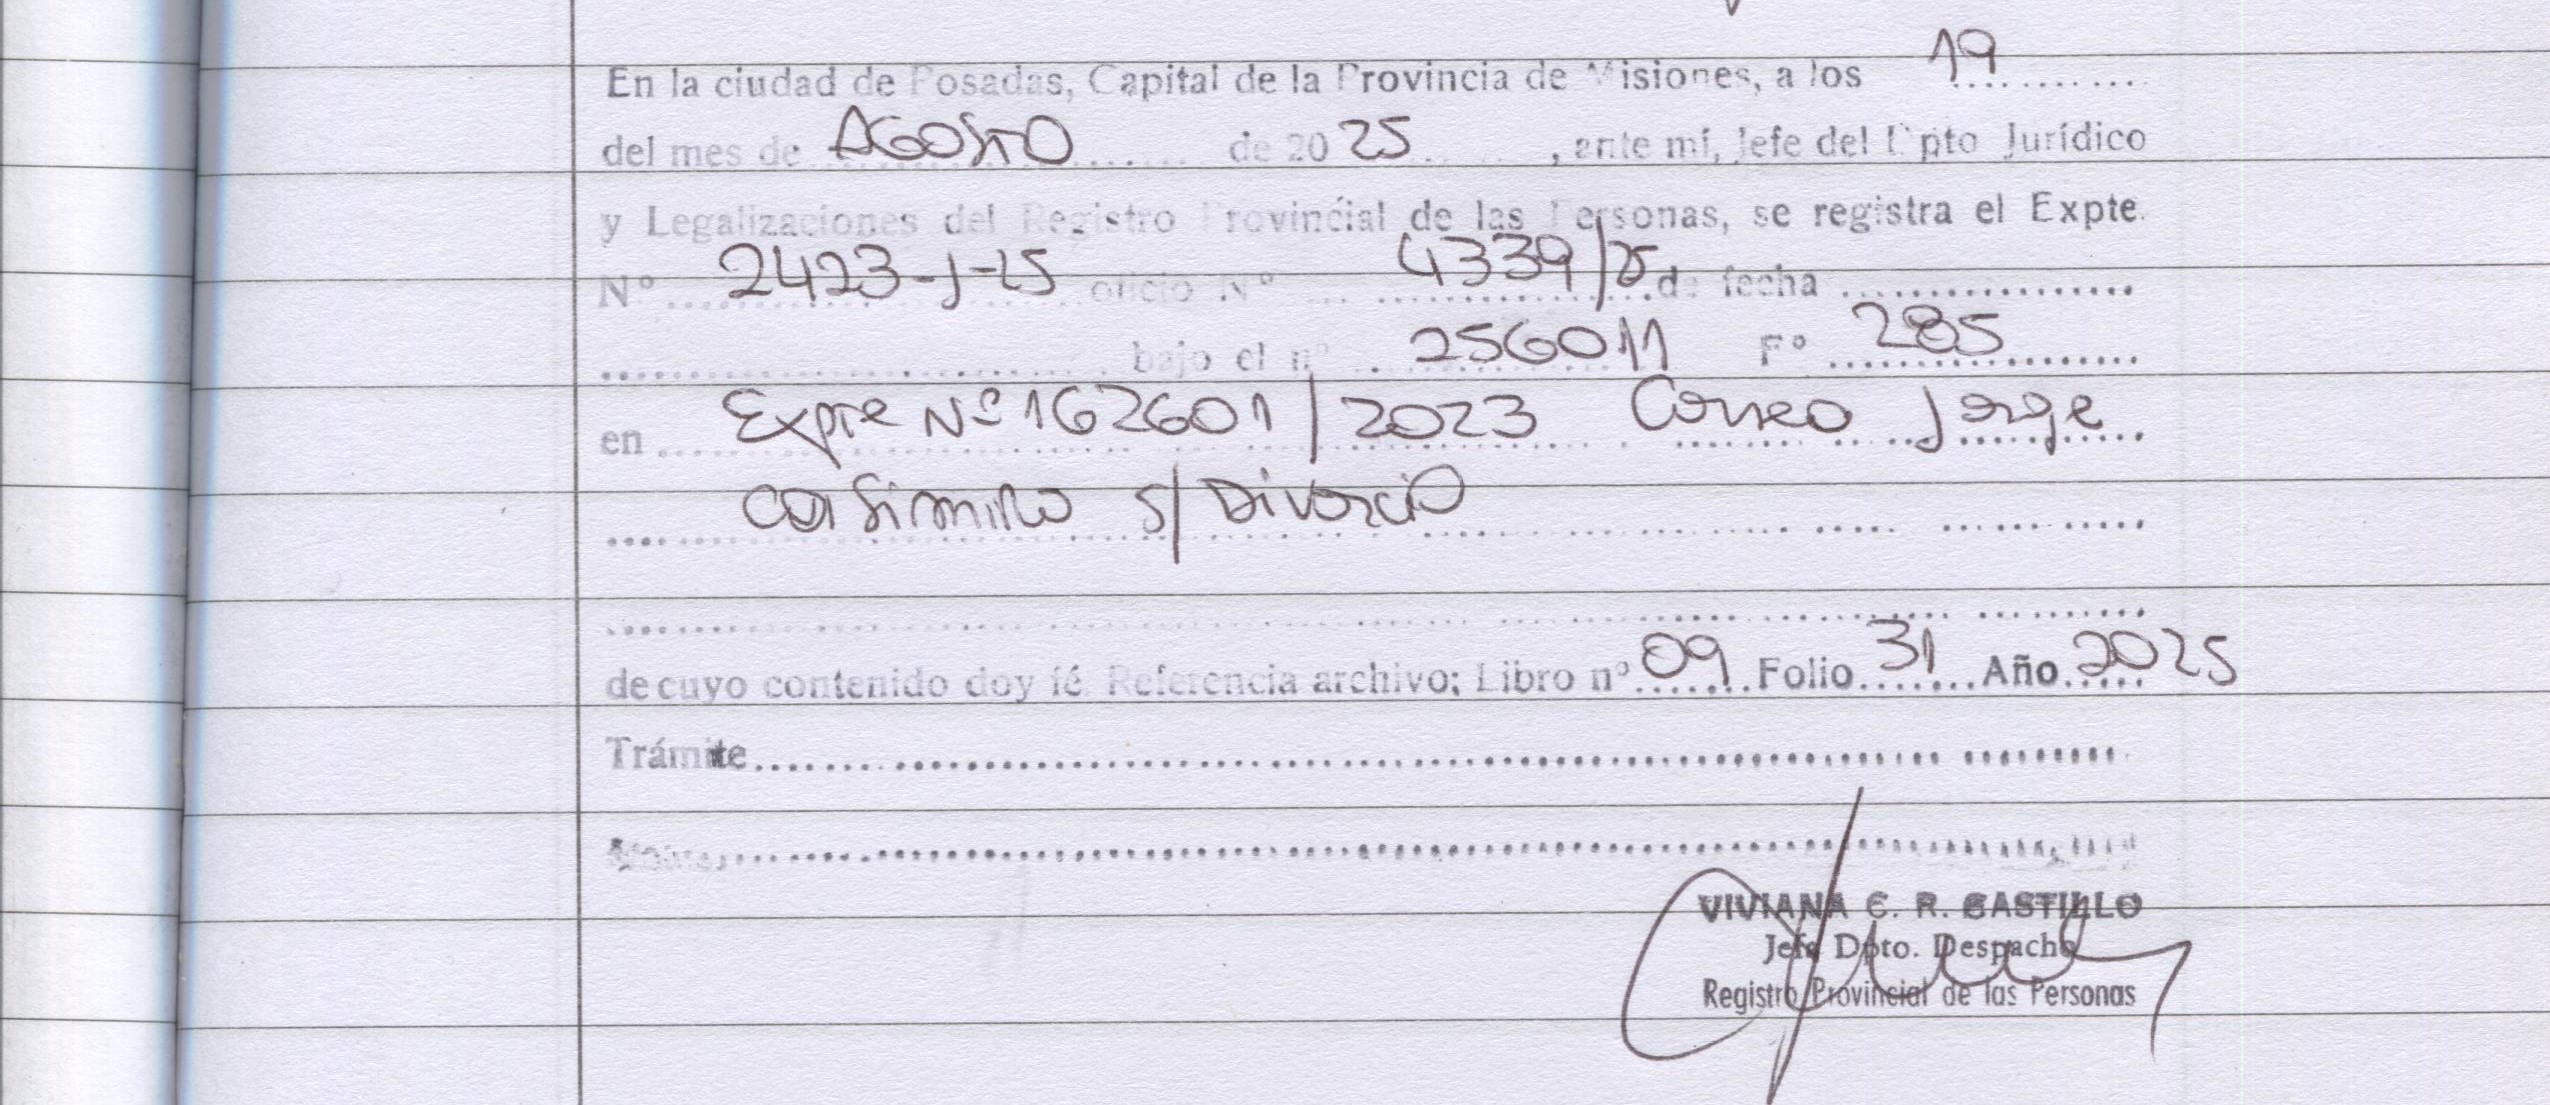 En la ciudad de Posadas, Capital de la Provincia de Misiones, a los 19
del mes de AGOSTO de 2025, ante mí, Jefe del Dpto Jurídico
y Legalizaciones del Registro Provincial de las Personas, se registra el Expte.
Nº 2423-J-25 oficio Nº 4339/25 de fecha
bajo el nº 256011 Fº 285
en Expte Nº 162601/2023 Correo Jorge
Casimiro S/ Divorcio
de cuyo contenido doy fé Referencia archivo; Libro nº 09 Folio 31 Año 2025
Trámite
VIVIANA C. R. CASTILLO
Jefa Dpto. Despacho
Registro Provincial de las Personas